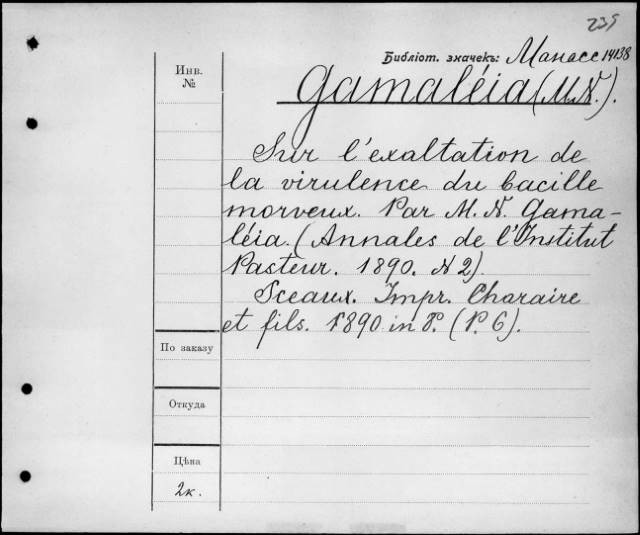 239
Библіот. значекъ: Манасс 14138
Инв.
№
Gamaléia (M.N.).
Sur l'exaltation de
la virulence du bacille
morveux. Par M. N. Gama-
léia. (Annales de l'Institut
Pasteur. 1890. N 2).
Sceaux. Impr. Charaire
et fils. 1890 in 8°. (P. 6).
По заказу
Откуда
Цѣна
2к.